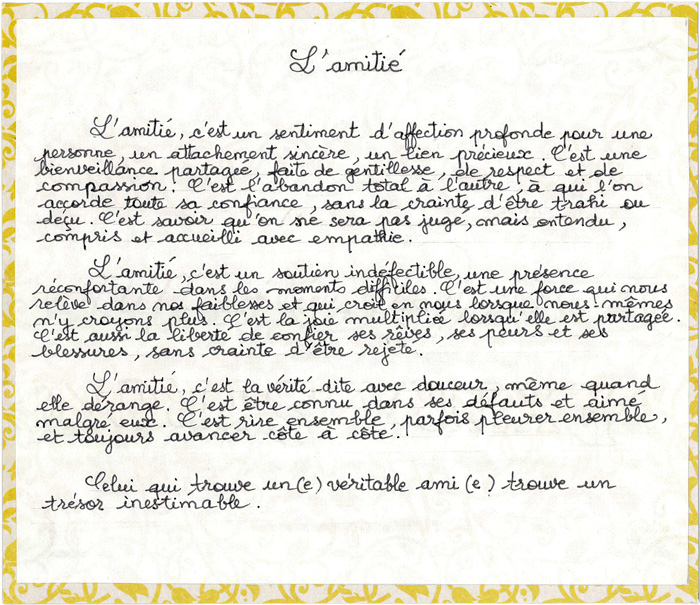 L'amitié
L'amitié, c'est un sentiment d'affection profonde pour une
personne, un attachement sincère, un lien précieux. C'est une
bienveillance partagée, faite de gentillesse, de respect et de
compassion. C'est l'abandon total à l'autre, à qui l'on
accorde toute sa confiance, sans la crainte d'être trahi ou
déçu. C'est savoir qu'on ne sera pas jugé, mais entendu,
compris et accueilli avec empathie.
L'amitié, c'est un soutien indéfectible, une présence
réconfortante dans les moments difficiles. C'est une force qui nous
relève dans nos faiblesses et qui croit en nous lorsque nous-mêmes
n'y croyons plus. C'est la joie multipliée lorsqu'elle est partagée.
C'est aussi la liberté de confier ses rêves, ses peurs et ses
blessures, sans crainte d'être rejeté.
L'amitié, c'est la vérité dite avec douceur, même quand
elle dérange. C'est être connu dans ses défauts et aimé
malgré eux. C'est rire ensemble, parfois pleurer ensemble,
et toujours avancer côte à côte.
Celui qui trouve un(e) véritable ami(e) trouve un
trésor inestimable.